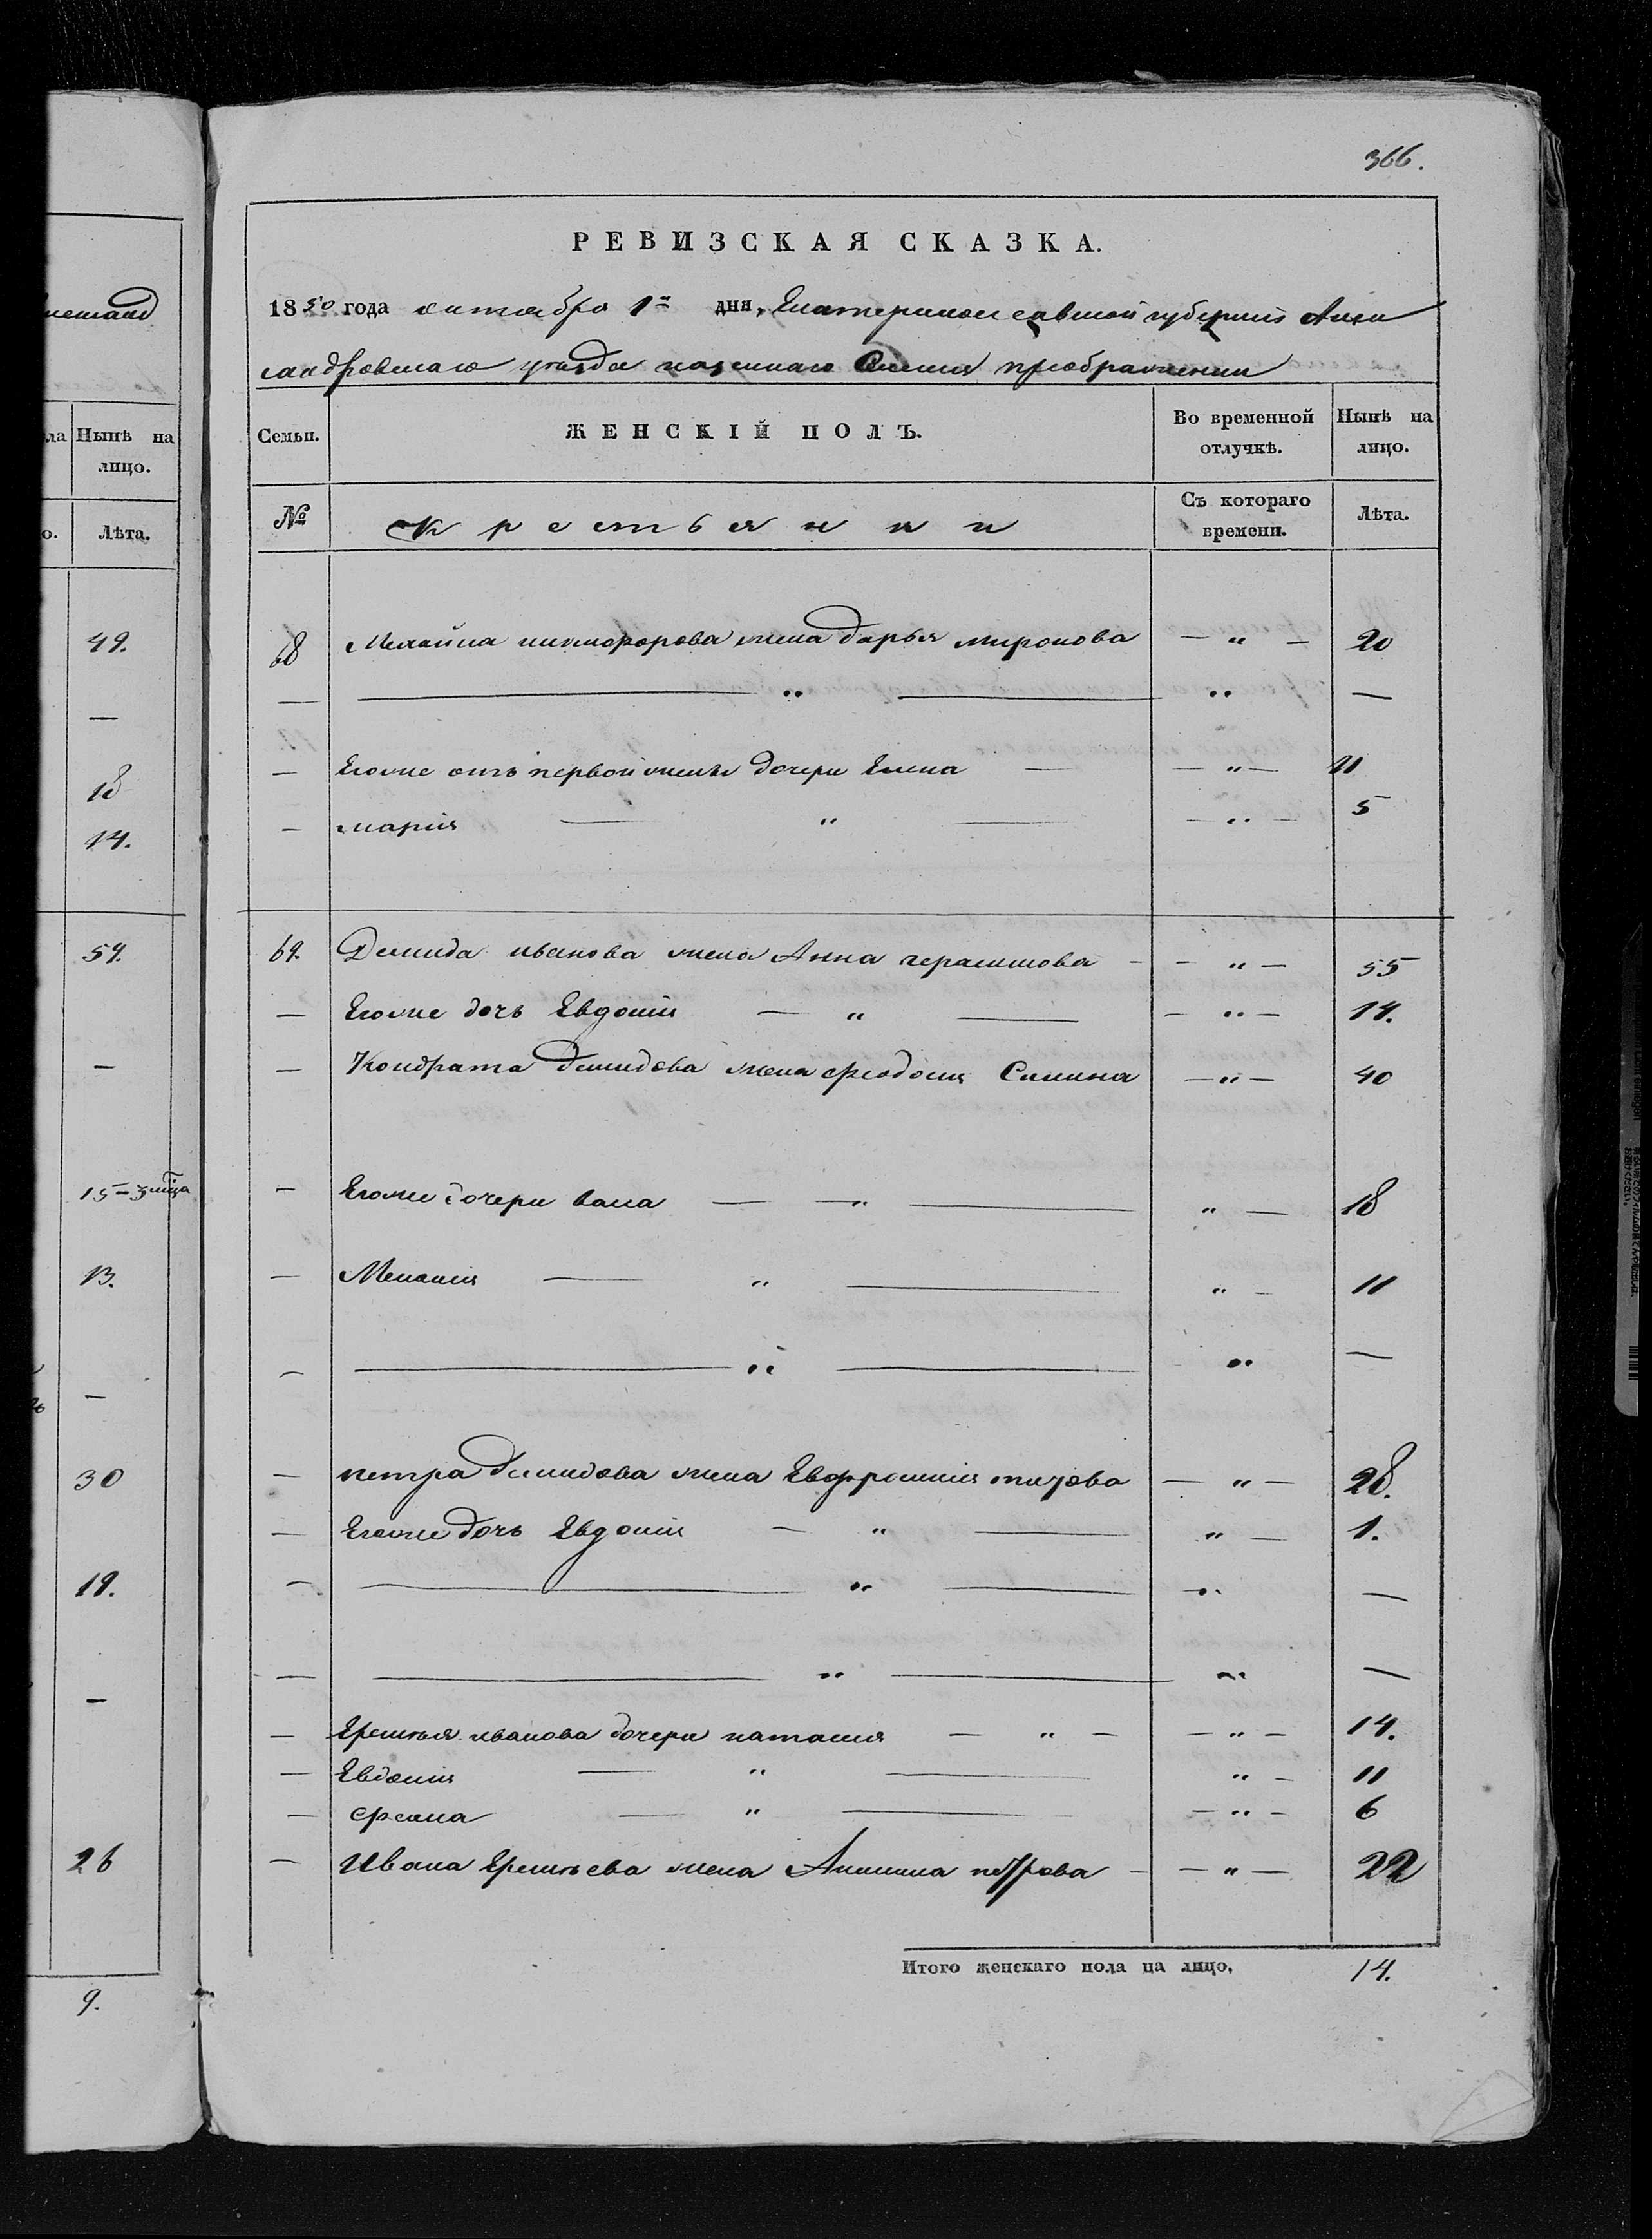 366.
РЕВИЗСКАЯ СКАЗКА.
1850 года октября 1го дня, Екатеринославской губернии Алек
сандровскаго уезда казеннаго селения преображенки
Семьи.
ЖЕНСКІЙ ПОЛЪ.
Во временной отлучкѣ.
Нынѣ на лицо.
№
Крестьянки
Съ котораго времени.
Лѣта.
68 Михайла никифорова жена дарья миронова — „ — 20
— — „ — „ —
— Егоже отъ первой жены дочери Елена — — „ — 11
— марія — „ — — „ — 5
69. Демида иванова жена Анна герасимова — — „ — 55
— Егоже дочь Евдокія — „ — — „ — 14.
— Кондрата демидова жена феодосия Силина — „ — 40
— Егоже дочери васа — „ — „ — 18
— Меланія — „ — „ — 11
— — „ — „ —
— петра демидова жена Евфросинія титова — „ — 28.
— Егоже дочь Евдокія — „ — „ — 1.
— — „ — „ —
— — „ — „ —
— Еремея иванова дочери наталия — „ — — „ — 14.
— Евдокія — „ — „ — 11
— фекла — „ — — „ — 6
— Ивана Еремеева жена Акилина петрова — — „ — 22
Итого женскаго пола на лицо, 14.
ла
Нынѣ на лицо.
о.
Лѣта.
49.
—
18
14.
—
13.
—
30
19.
—
26
9.